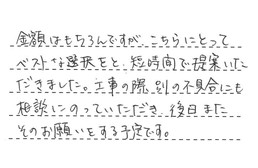 金額はもちろんですが、こちらにとって
ベストな選択をと、短時間で提案いた
だきました。工事の際、別の不具合にも
相談にのっていただき、後日また
そのお願いをする予定です。